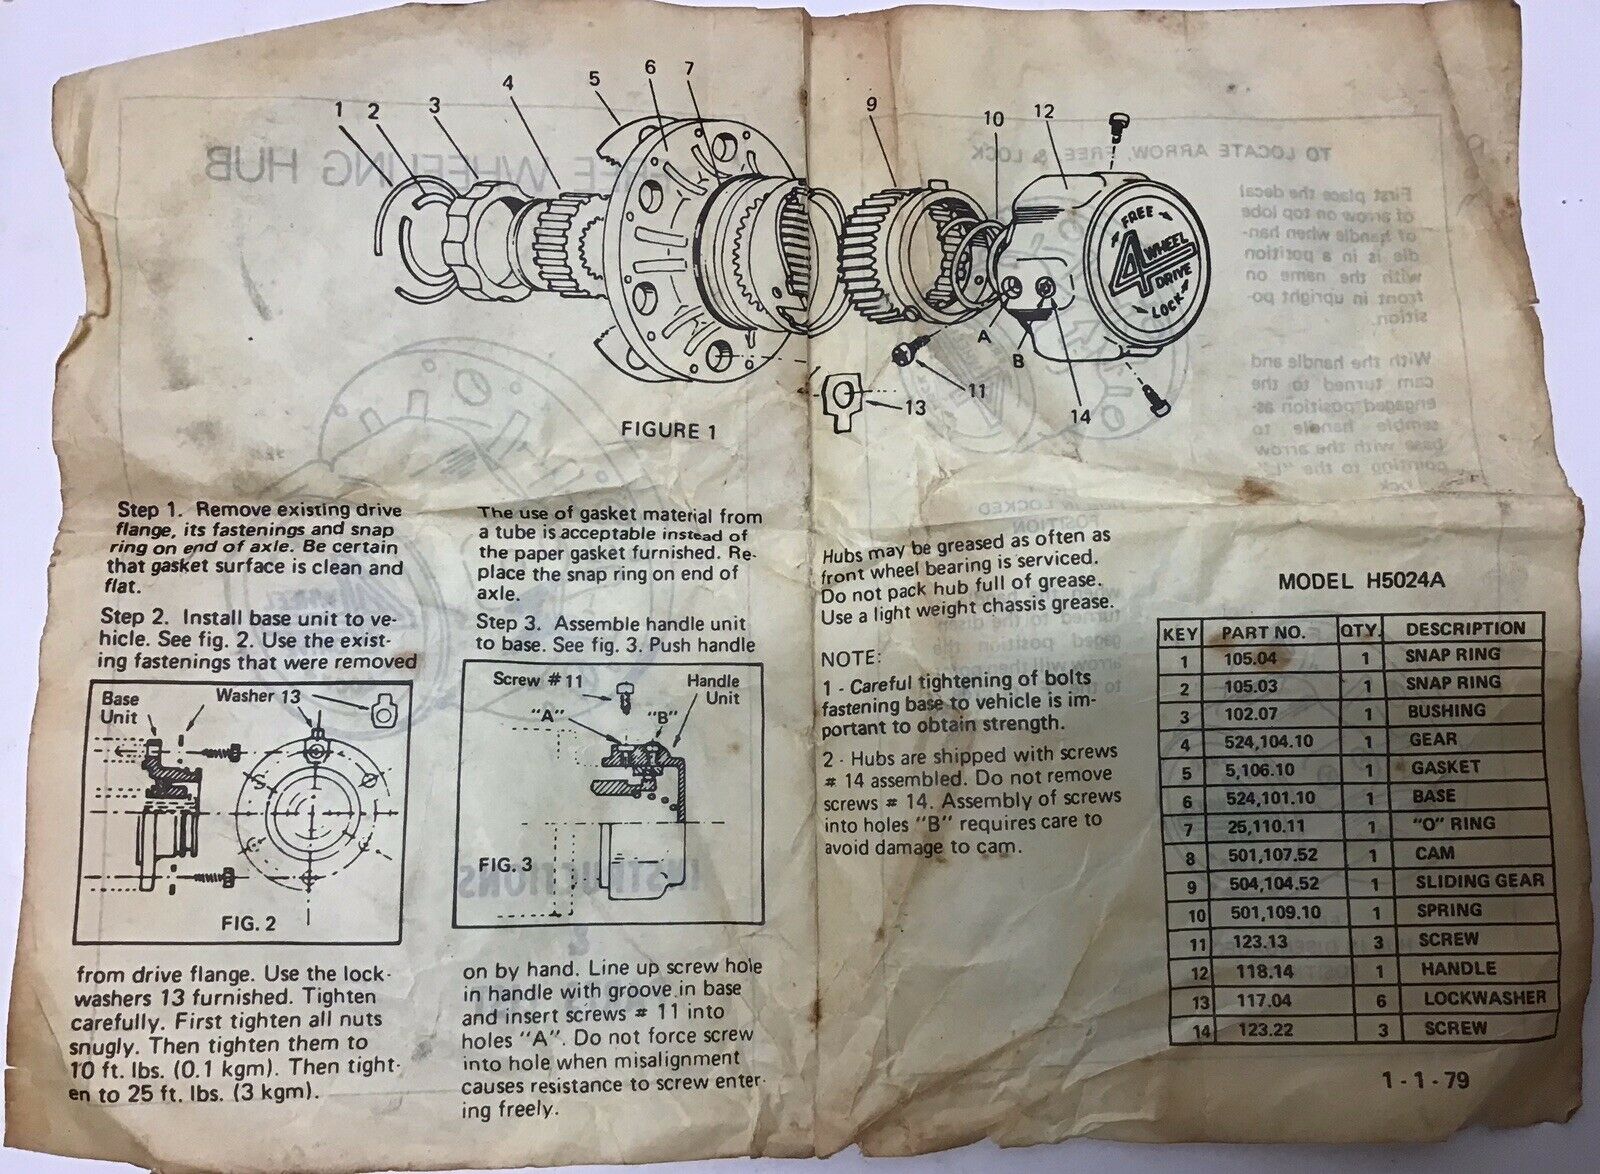 1
2
3
4
5
6
7
9
10
12
FREE
4 WHEEL
DRIVE
LOCK
A
B
11
13
14
FIGURE 1
FREE WHEELING HUB
TO LOCATE ARROW, FREE, & LOCK
First place the decal
of arrow on top lobe
of handle when han-
dle is in a position
with the name on
front in upright po-
sition.
With the handle and
cam turned to the
engaged position as-
semble handle to
base with the arrow
pointing to the "L"
Step 1. Remove existing drive
flange, its fastenings and snap
ring on end of axle. Be certain
that gasket surface is clean and
flat.
Step 2. Install base unit to ve-
hicle. See fig. 2. Use the exist-
ing fastenings that were removed
Base
Unit
Washer 13
FIG. 2
from drive flange. Use the lock-
washers 13 furnished. Tighten
carefully. First tighten all nuts
snugly. Then tighten them to
10 ft. lbs. (0.1 kgm). Then tight-
en to 25 ft. lbs. (3 kgm).
The use of gasket material from
a tube is acceptable instead of
the paper gasket furnished. Re-
place the snap ring on end of
axle.
Step 3. Assemble handle unit
to base. See fig. 3. Push handle
Screw #11
Handle
Unit
"A"
"B"
FIG. 3
INSTRUCTIONS
&
on by hand. Line up screw hole
in handle with groove in base
and insert screws # 11 into
holes "A". Do not force screw
into hole when misalignment
causes resistance to screw enter-
ing freely.
Hubs may be greased as often as
front wheel bearing is serviced.
Do not pack hub full of grease.
Use a light weight chassis grease.
NOTE:
1 - Careful tightening of bolts
fastening base to vehicle is im-
portant to obtain strength.
2 - Hubs are shipped with screws
# 14 assembled. Do not remove
screws # 14. Assembly of screws
into holes "B" requires care to
avoid damage to cam.
MODEL H5024A
KEY PART NO. QTY. DESCRIPTION
1 105.04 1 SNAP RING
2 105.03 1 SNAP RING
3 102.07 1 BUSHING
4 524,104.10 1 GEAR
5 5,106.10 1 GASKET
6 524,101.10 1 BASE
7 25,110.11 1 "O" RING
8 501,107.52 1 CAM
9 504,104.52 1 SLIDING GEAR
10 501,109.10 1 SPRING
11 123.13 3 SCREW
12 118.14 1 HANDLE
13 117.04 6 LOCKWASHER
14 123.22 3 SCREW
1-1-79